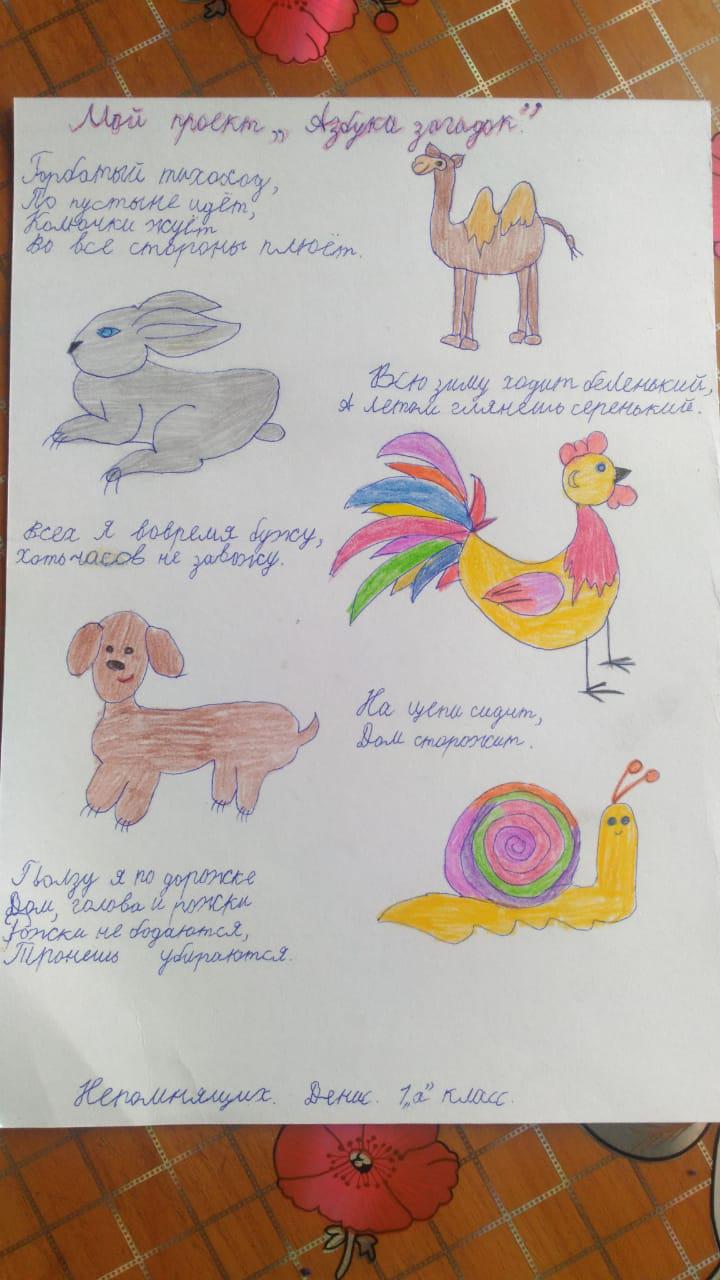 Мой проект „Азбука загадок."
Горбатый тихоход,
По пустыне идёт,
Колючки жуёт
Во все стороны плюёт.
Всю зиму ходит беленький,
А летом глянешь серенький.
Всех я вовремя бужу,
Хоть часов не завожу.
На цепи сидит,
Дом сторожит.
Ползу я по дорожке
Дом, голова и рожки
Рожки не бодаются,
Тронешь убираются.
Непомнящих. Денис. 1„а" класс.